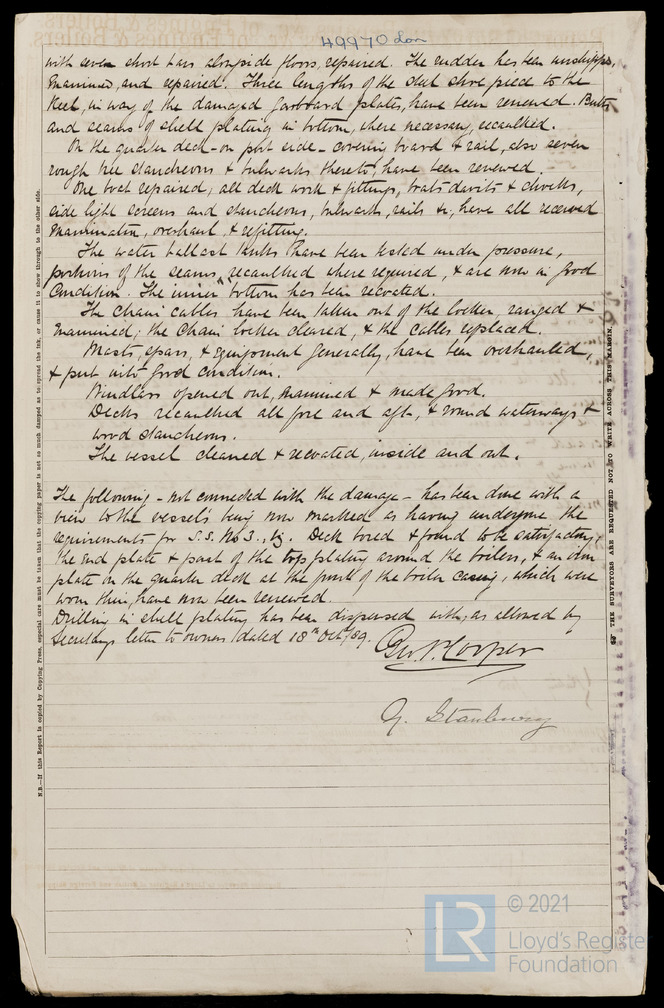 49970 Lon
with seven short bars alongside floors, repaired. The rudder has been unshipped,
examined, and repaired. Three lengths of the steel shoe piece to the
Keel, in way of the damaged garboard plates, have been renewed. Butts
and seams of shell plating in bottom, where necessary, recaulked.
On the quarter deck - on port side - covering board & rail, also seven
rough tree stancheons & bulwarks thereto, have been renewed.
One boat repaired; all deck work & fittings, boats davits & chocks,
side light screens and stancheons, bulwarks, rails &c, have all received
examination, overhaul, & refitting.
The water ballast tanks have been tested under pressure,
portions of the seams, recaulked where required, & are now in good
Condition. The inner bottom has been recoated.
The chain cables have been taken out of the locker, ranged &
examined; the chain locker cleared, & the cables replaced.
Masts, spars, & equipment generally, have been overhauled,
& put into good condition.
Windlass opened out, examined & made good.
Decks recaulked all fore and aft, & round waterways &
wood stancheons.
The vessel cleaned & recoated, inside and out.
The following - not connected with the damage - has been done with a
view to the vessel's being now marked as having undergone the
requirements for S.S. No 3., viz. Deck bored & found to be satisfactory;
the end plate & part of the top plating around the boilers, & an iron
plate on the quarter deck at the front of the boiler casing, which were
worn thin, have now been renewed.
Drilling in shell plating has been dispensed with, as allowed by
Secretary's letter to owners dated 18th Oct/89.
Geo. P. Cooper
G. Stanbury
N.B.—If this Report is copied by Copying Press, especial care must be taken that the copying paper is not so much damped as to spread the ink, or cause it to show through to the other side.
THE SURVEYORS ARE REQUESTED NOT TO WRITE ACROSS THIS MARGIN.
© 2021
LR
Lloyd's Register
Foundation